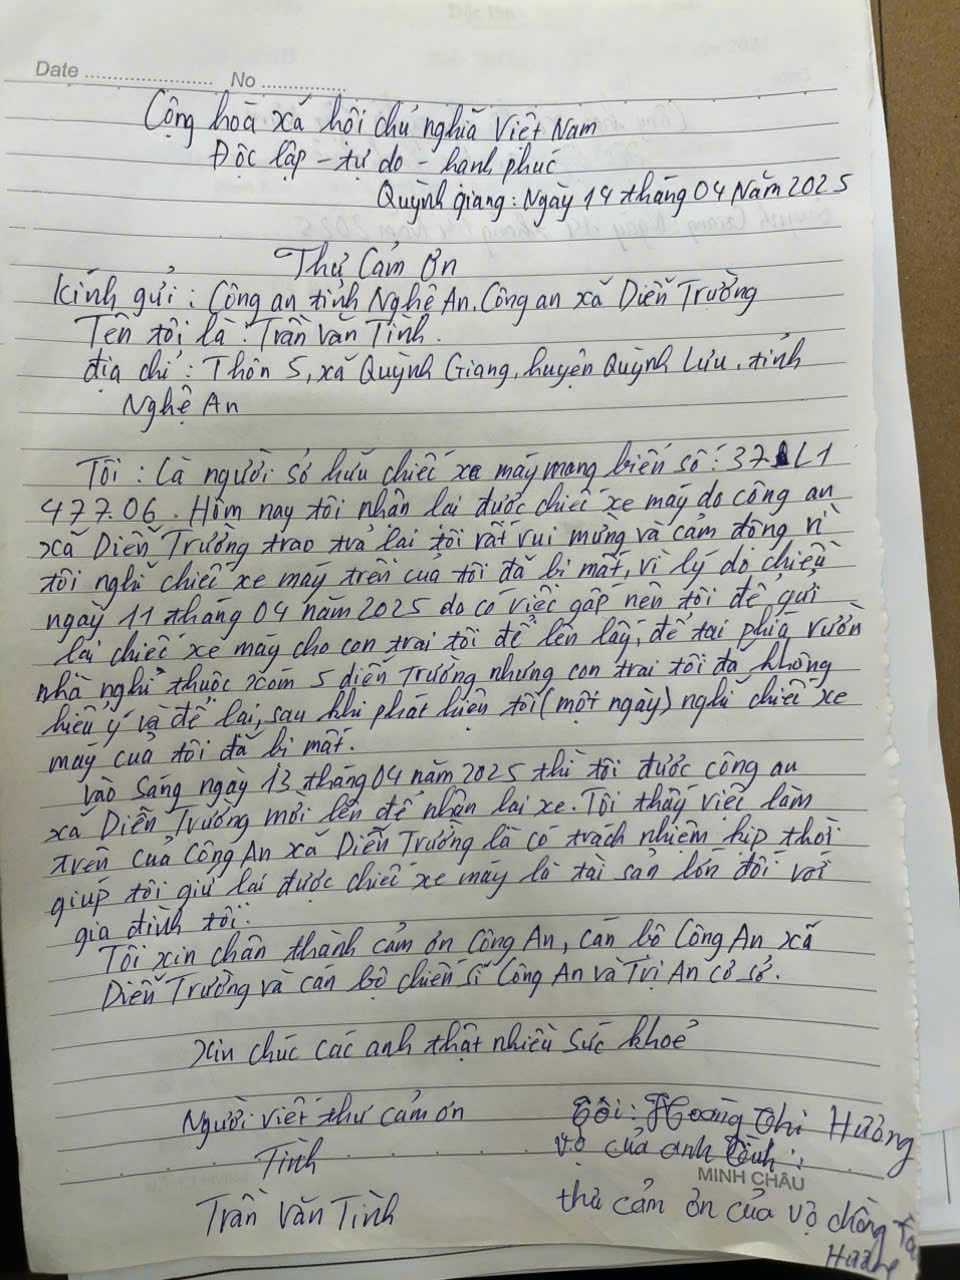 Date .................... No ..............
Cộng hoà xã hội chủ nghĩa Việt Nam
Độc lập - tự do - hạnh phúc
Quỳnh giang: Ngày 14 tháng 04 Năm 2025
Thư Cảm Ơn
Kính gửi: Công an tỉnh Nghệ An. Công an xã Diễn Trường
Tên tôi là: Trần Văn Tình.
địa chỉ: Thôn 5, xã Quỳnh Giang, huyện Quỳnh Lưu, tỉnh
Nghệ An
Tôi: Là người sở hữu chiếc xe máy mang biển số: 37 L1
477.06. Hôm nay tôi nhận lại được chiếc xe máy do công an
xã Diễn Trường trao trả lại tôi rất vui mừng và cảm động vì
tôi nghĩ chiếc xe máy trên của tôi đã bị mất, vì lý do chiều
ngày 11 tháng 04 năm 2025 do có việc gấp nên tôi để gửi
lại chiếc xe máy cho con trai tôi để lên lấy, để tại phía vườn
nhà nghỉ thuộc xóm 5 diễn Trường nhưng con trai tôi đã không
hiểu ý và để lại, sau khi phát hiện tôi (một ngày) nghĩ chiếc xe
máy của tôi đã bị mất.
Vào sáng ngày 13 tháng 04 năm 2025 thì tôi được công an
xã Diễn Trường mời lên để nhận lại xe. Tôi thấy việc làm
trên của Công An xã Diễn Trường là có trách nhiệm kịp thời
giúp tôi giữ lại được chiếc xe máy là tài sản lớn đối với
gia đình tôi.
Tôi xin chân thành cảm ơn Công An, cán bộ Công An xã
Diễn Trường và cán bộ chiến sĩ Công An và Trị An cơ sở.
Xin chúc các anh thật nhiều sức khoẻ
Người viết thư cảm ơn
Tình
Trần Văn Tình
Tôi: Hoàng Thị Hường
vợ của anh Tình:
MINH CHÂU
thư cảm ơn của vợ chồng
Hường